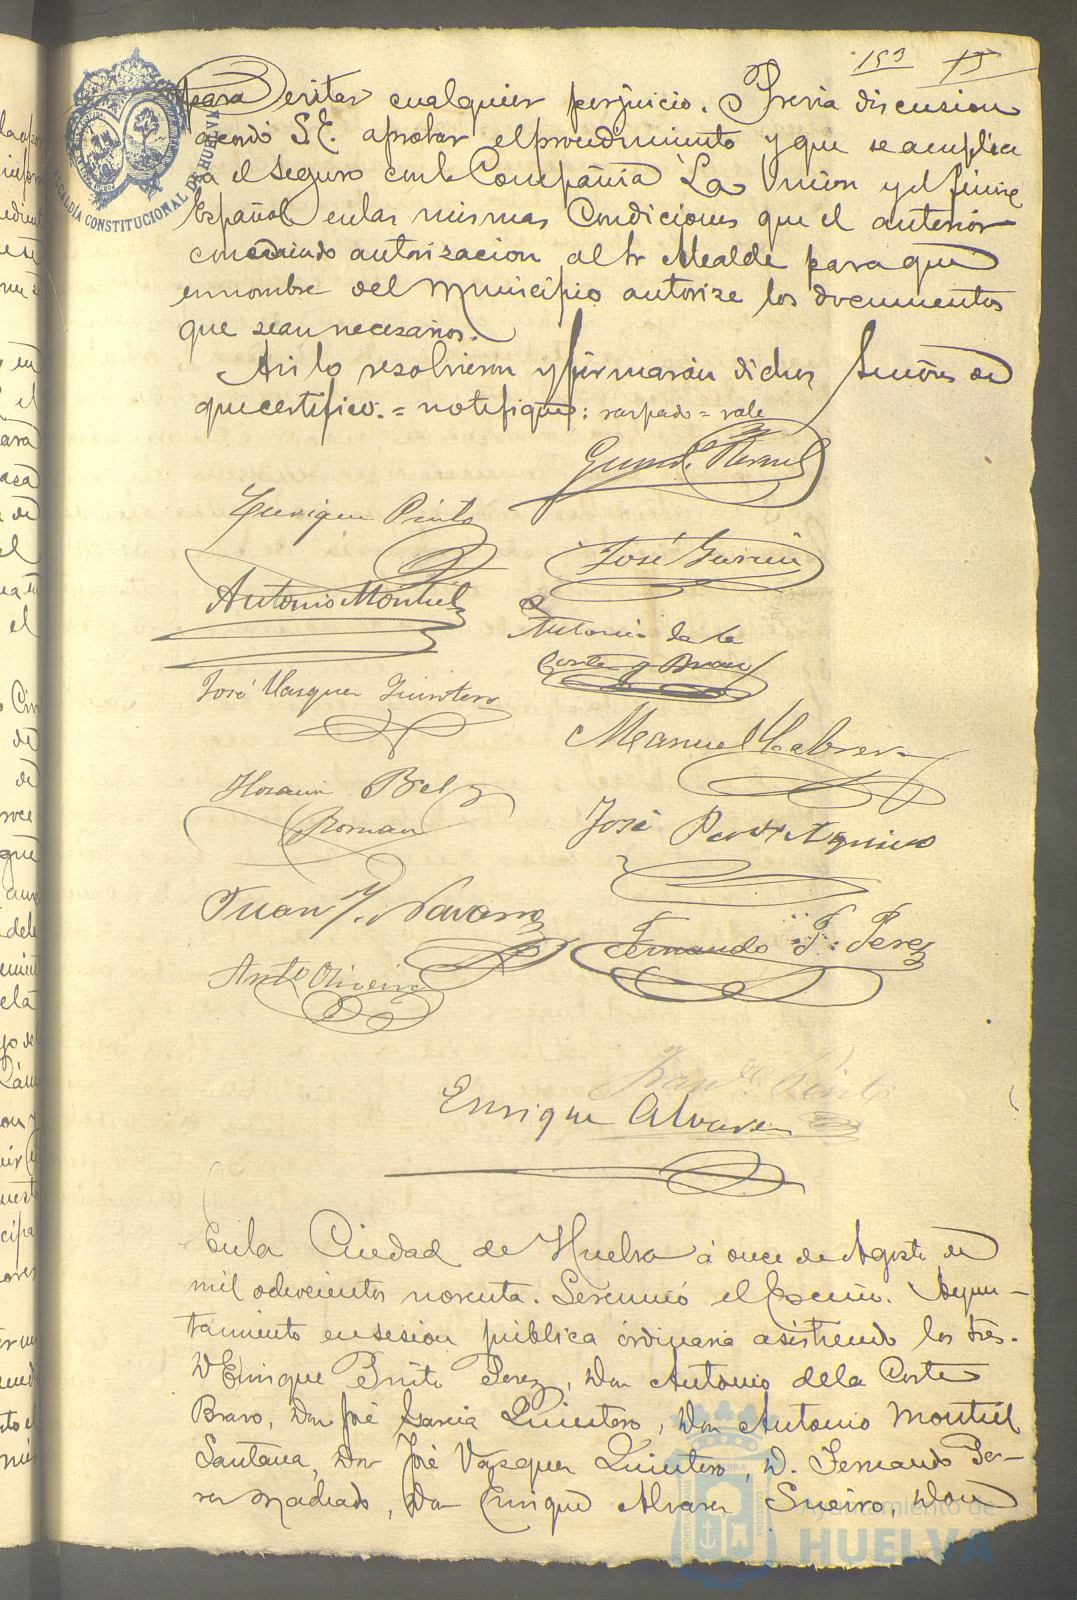 153 15
para evitar cualquier perjuicio. Previa discusion
acordó S.E. aprobar el procedimiento y que se amplie
a el seguro con la Compañia La Union y el Fenix
Español en las mismas Condiciones que el anterior
concediendo autorizacion al Sr Alcalde para que
en nombre del Municipio autorize los documentos
que sean necesarios.
Asi lo resolvieron y firmarán dichos Señores de
que certifico. = notifique: raspado = vale
Enrique Pinto
José Garcia
Antonio Montiel
Antonio de la
Corte y Bravo
José Vasquez Quintero
Manuel Cabrera
Horacio Bel
Roman
José
Juan J. Navarro
Fernando P. Perez
Antº Oliveira
Franco Pinto
Enrique Alvarez
En la Ciudad de Huelva á once de Agosto de
mil ochocientos noventa. Se reunió el Excmo. Ayun-
tamiento en sesion publica ordinaria asistiendo los Sres.
D Enrique Pinto Perez, Don Antonio de la Corte
Bravo, Don José Garcia Quintero, Don Antonio Montiel
Santana, Don José Vazquez Quintero, D. Fernando Pe-
rez Machado, Don Enrique Alvarez Sueiro, Don
ALCALDÍA CONSTITUCIONAL DE HUELVA
Ayuntamiento de
HUELVA